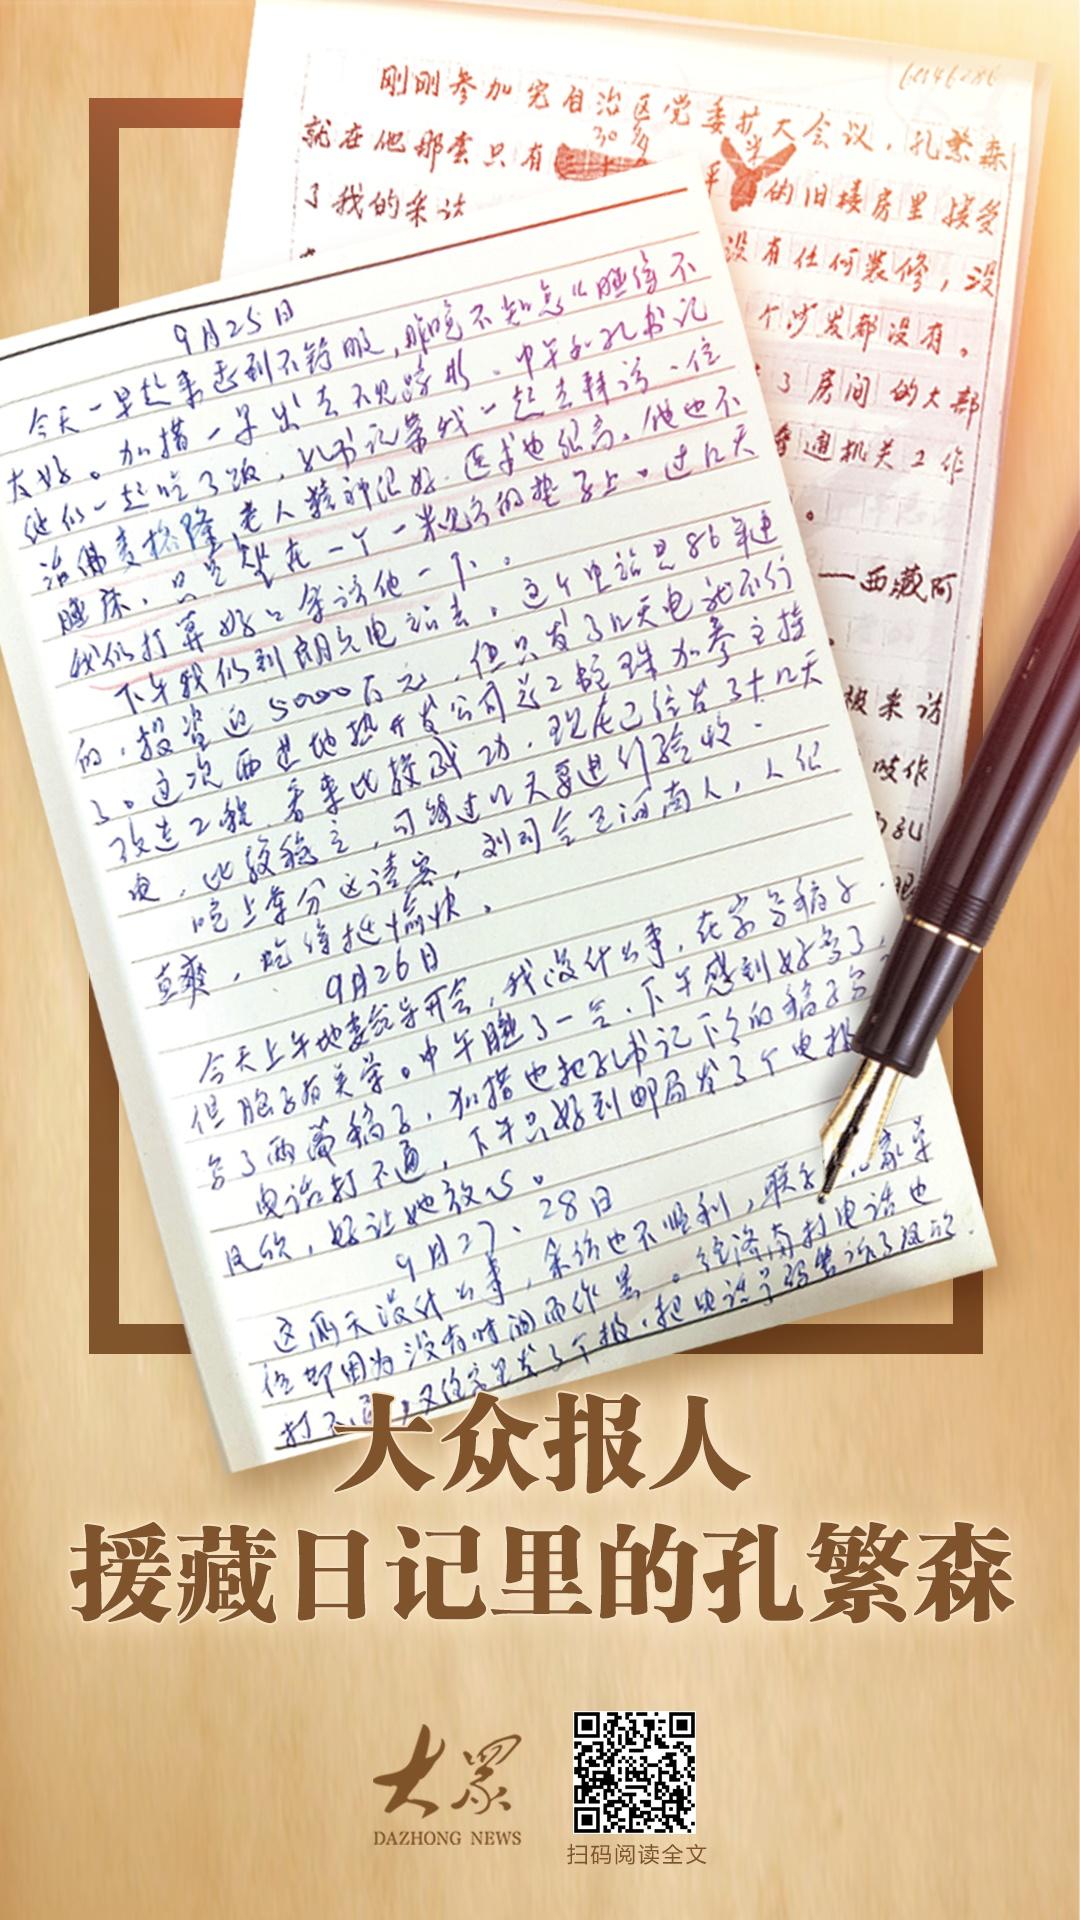 刚刚参加完自治区党委扩大会议,孔繁森
就在他那套只有30多平米的旧楼房里接受
了我的采访
没有任何装修,没
个沙发都没有。
了房间的大部
普通机关工作
——西藏阿
被采访
9月25日
今天一早起来感到不舒服,昨晚不知怎么睡得不
太好。加措一早出去不见踪影。中午和孔书记
他们一起吃了饭,孔书记带我一起去拜访一位
活佛麦格隆,老人精神很好,医术也很高,他也不
睡床,只是坐在一个一米见方的垫子上。过几天
我们打算好好采访他一下。
下午我们到朗久电站去。这个电站是86年建
的,投资近5000万元,但只发了几天电就不行
了。这次西藏地热开发公司总工程师加参主持
改造工程,看来比较成功,现在已经发了十几天
电,比较稳定,可能过几天要进行验收。
晚上军分区请客,刘司令是河南人,人很
直爽,吃得挺愉快。
9月26日
今天上午地委领导开会,我没什么事,在家写稿子。
但脑子有点晕。中午睡了一会,下午感到好多了,
写了两篇稿子,加措也把孔书记下乡的稿子写
电话打不通,下午只好到邮局发了个电报
欣欣,好让她放心。
9月27、28日
这两天没什么事,采访也不顺利,联系
位都因为没有时间而作罢。给济南打电话也
打不通,又给家里发了个报,把电话号码告诉了欣欣。
大众报人
援藏日记里的孔繁森
大眾
DAZHONG NEWS
扫码阅读全文